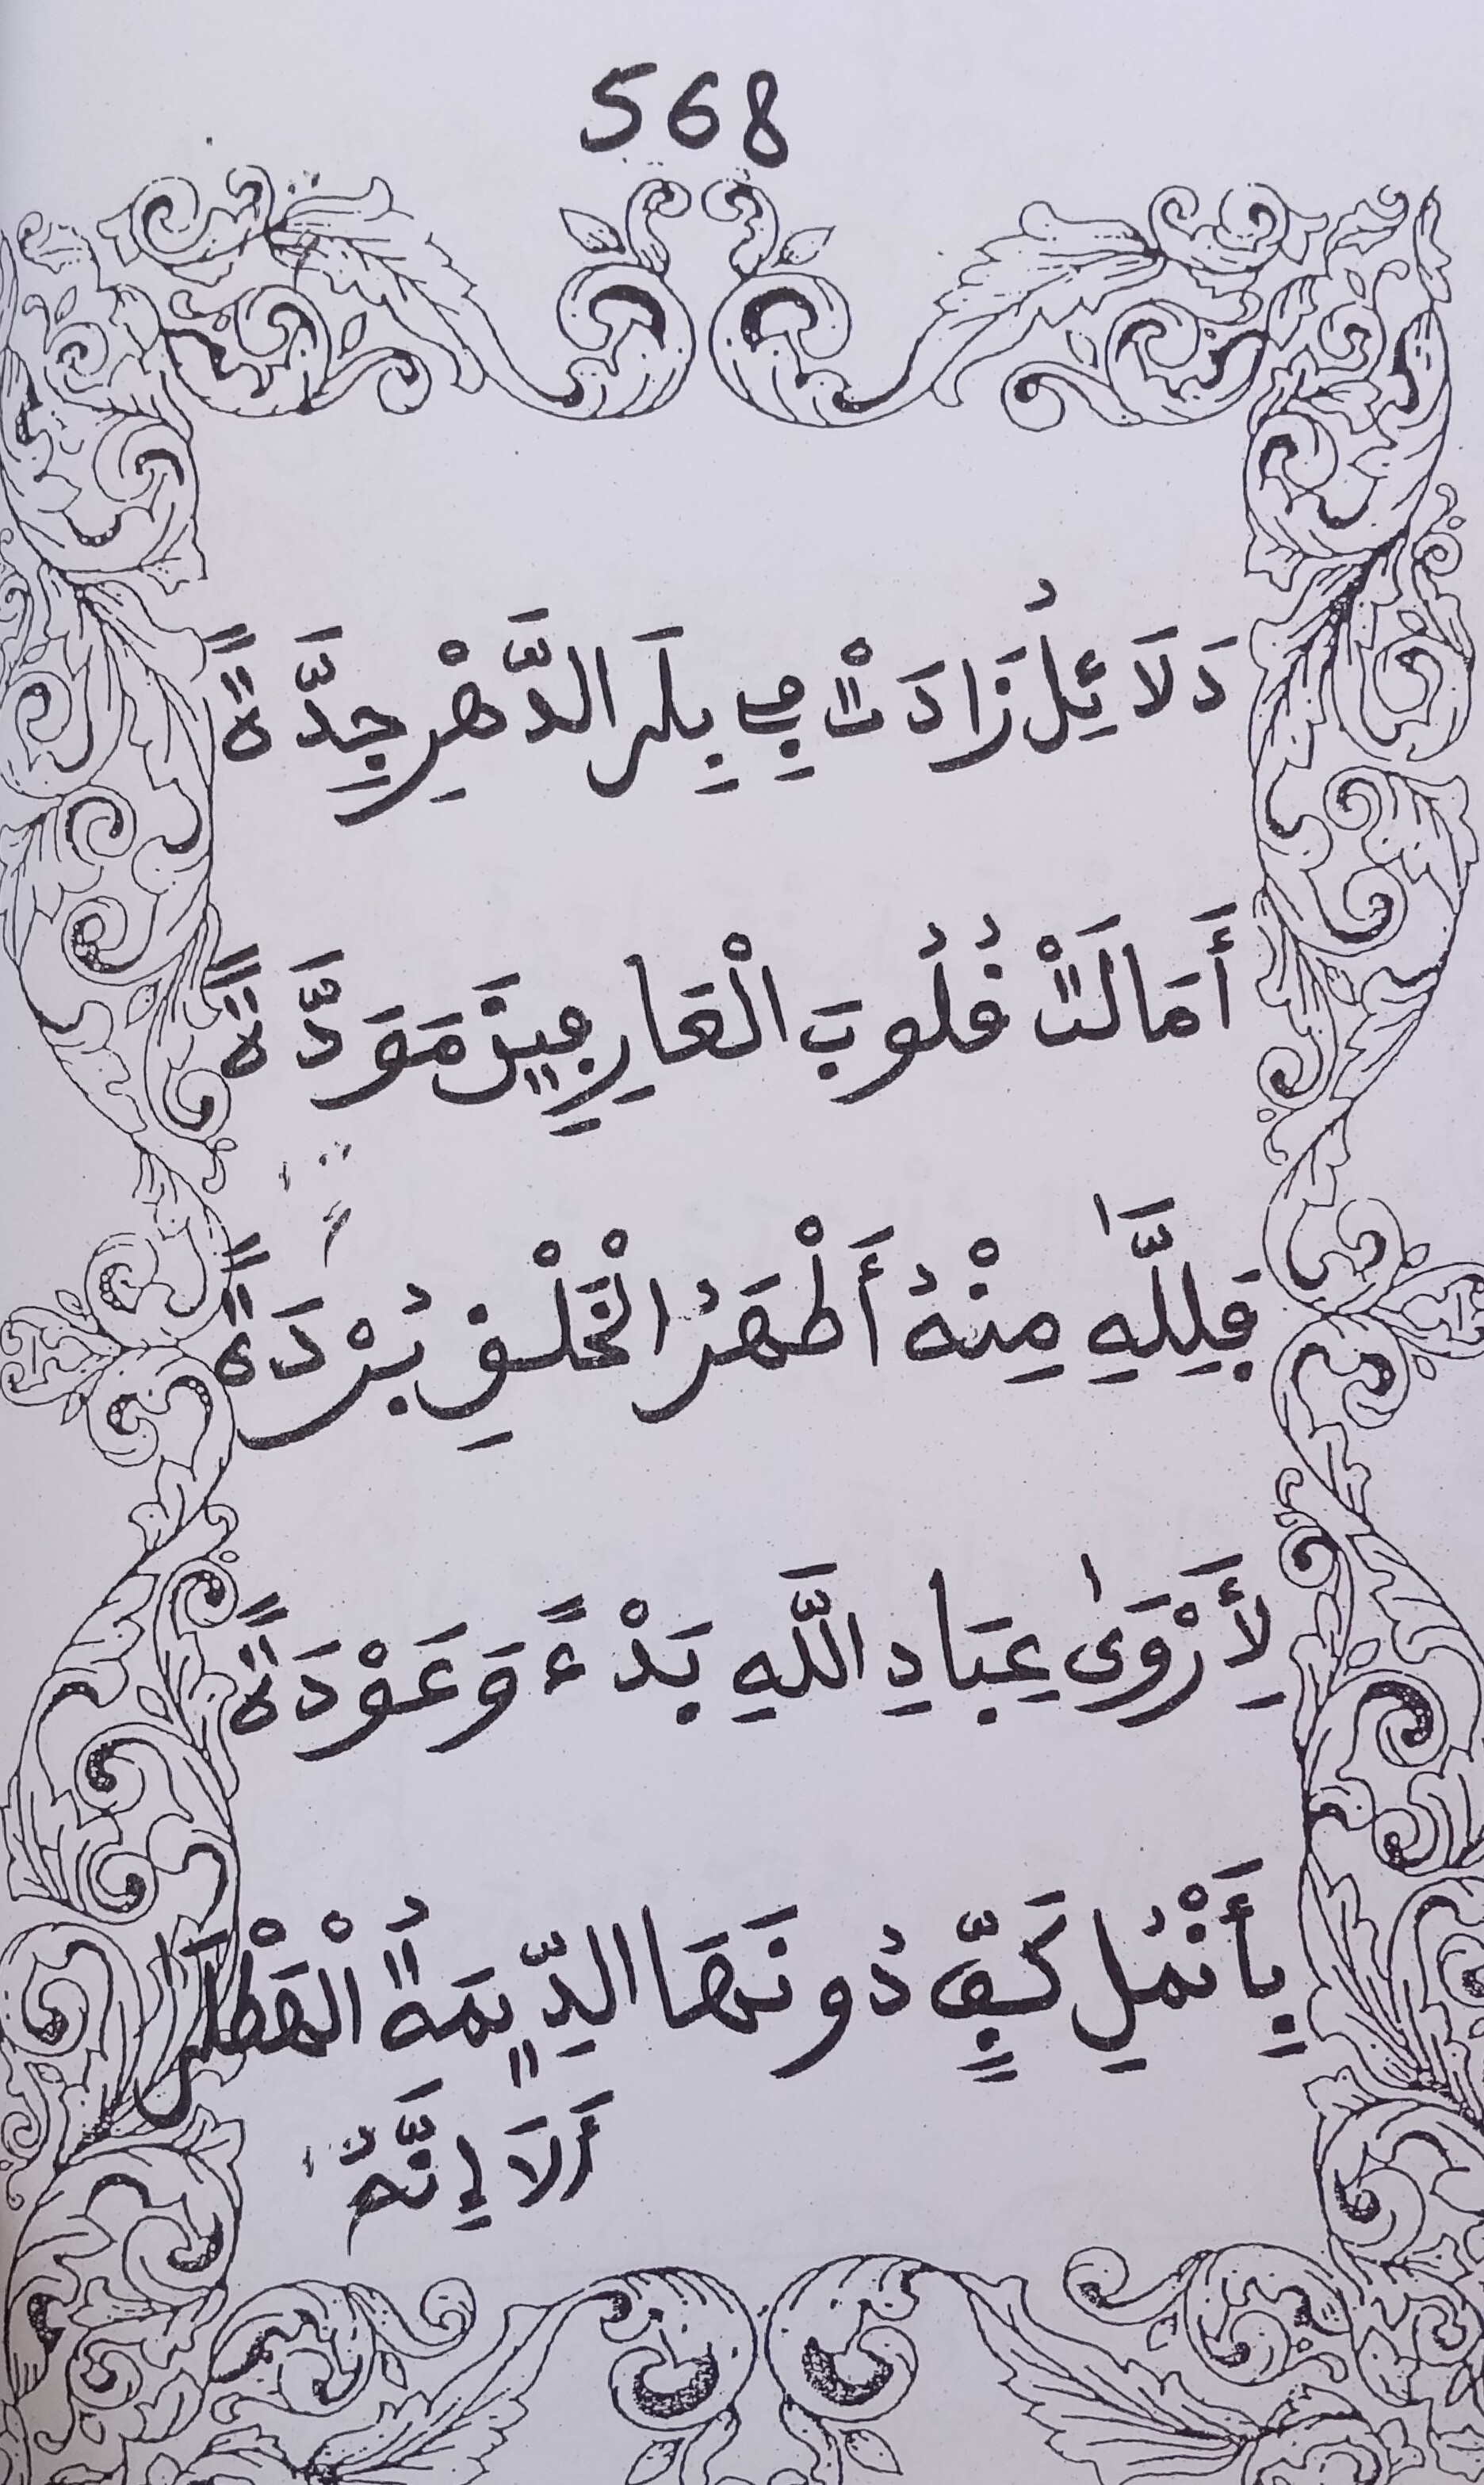 568
دَلَائِلُ زَادَتْ فِي بِلَى الدَّهْرِ جِدَّةً
أَمَالَتْ قُلُوبَ الْعَارِفِينَ مَوَدَّةً
فَلِلَّهِ مِنْهُ أَطْهَرُ الْخَلْقِ بُرْدَةً
لِأَرْوَىٰ عِبَادِ اللَّهِ بَدْءً وَعَوْدَةً
بِأَنْمُلِ كَفٍّ دُونَهَا الدِّيمَةُ الْهَطْلَى
أَلَا إِنَّهُ